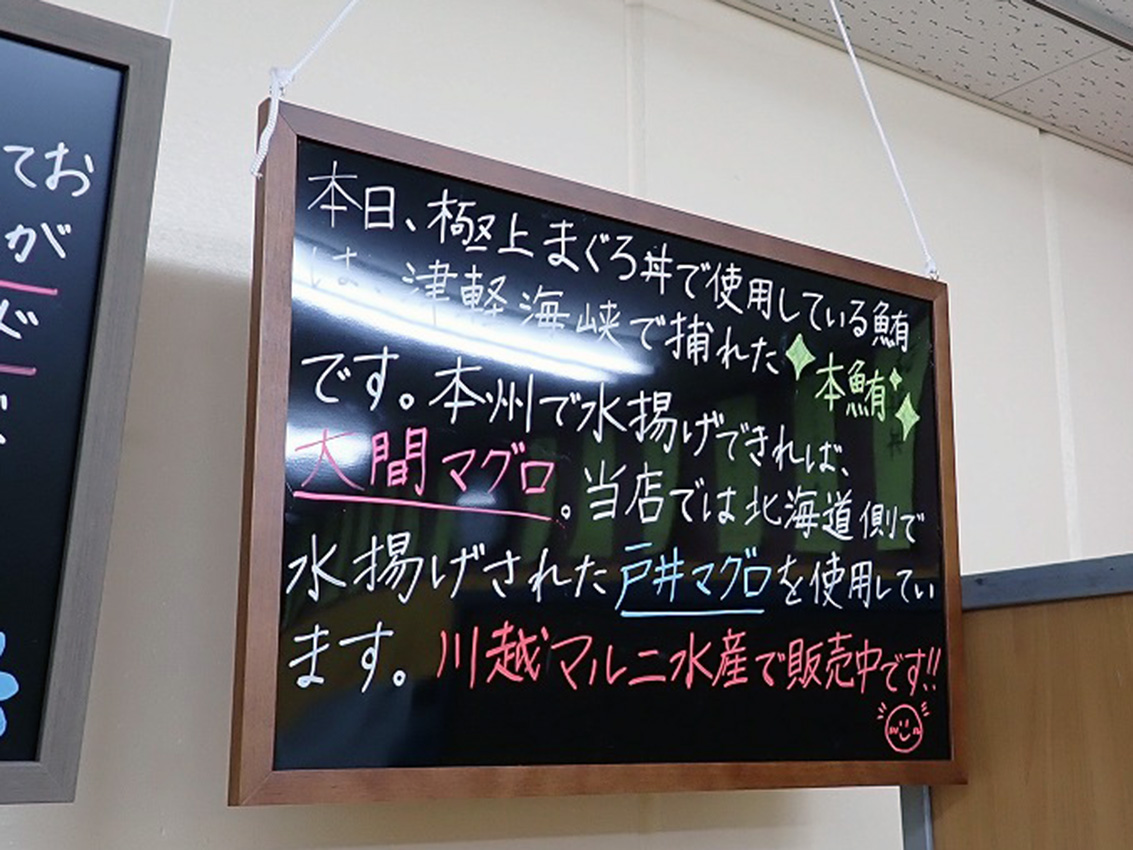 本日、極上まぐろ丼で使用している鮪
は、津軽海峡で捕れた本鮪
です。本州で水揚げできれば、
大間マグロ。当店では北海道側で
水揚げされた戸井マグロを使用してい
ます。川越マルニ水産で販売中です!!
てお
が